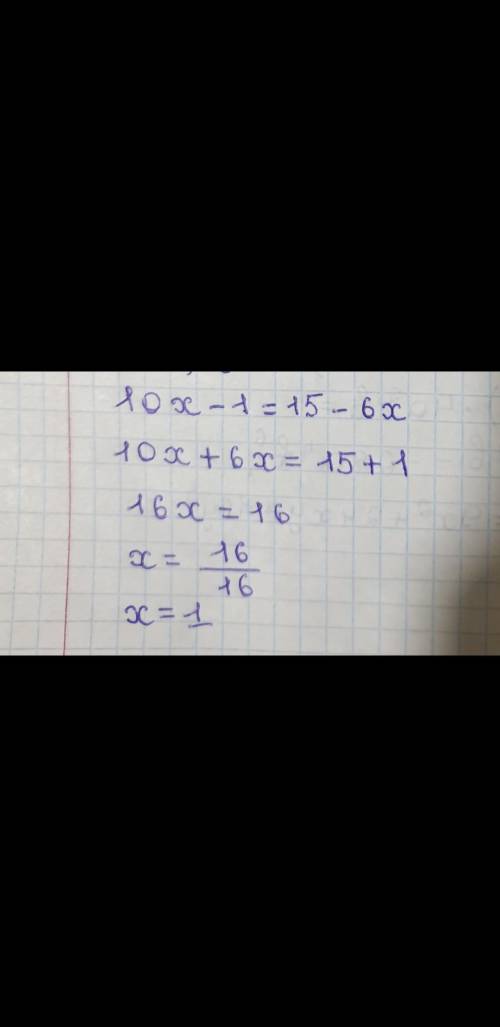 10x - 1 = 15 - 6x
10x + 6x = 15 + 1
16x = 16
x = 16/16
x = 1